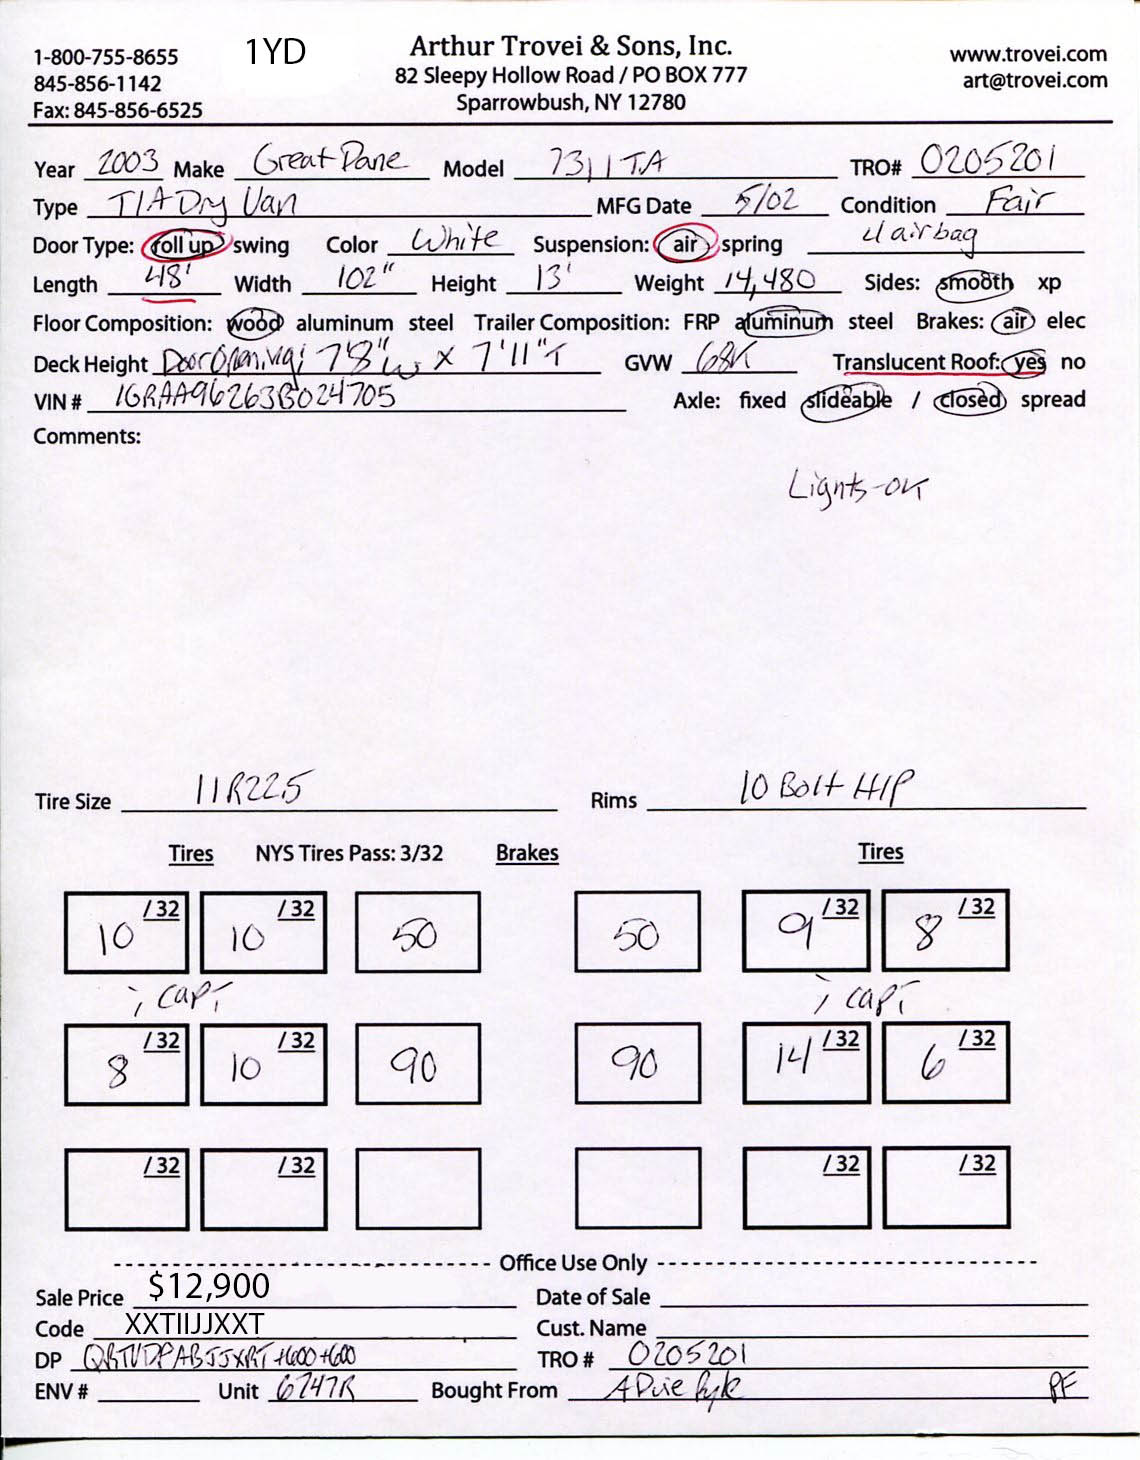 1-800-755-8655 1YD Arthur Trovei & Sons, Inc. www.trovei.com
845-856-1142 82 Sleepy Hollow Road / PO BOX 777 art@trovei.com
Fax: 845-856-6525 Sparrowbush, NY 12780
Year 2003 Make Great Dane Model 7311TA TRO# 0205201
Type T/A Dry Van MFG Date 5/02 Condition Fair
Door Type: roll up swing Color White Suspension: air spring 4 airbag
Length 48' Width 102" Height 13' Weight 14,480 Sides: smooth xp
Floor Composition: wood aluminum steel Trailer Composition: FRP aluminum steel Brakes: air elec
Deck Height Door Opening: 7'8"w x 7'11"T GVW 68K Translucent Roof: yes no
VIN # 1GRAA96263B024705 Axle: fixed slideable / closed spread
Comments:
Lights-OK
Tire Size 11R22.5 Rims 10 Bolt H/P
Tires NYS Tires Pass: 3/32 Brakes Tires
10 /32 10 /32 50 50 9 /32 8 /32
; CAP; ; CAP;
8 /32 10 /32 90 90 14 /32 6 /32
/32 /32 /32 /32
Office Use Only
Sale Price $12,900 Date of Sale
Code XXTIIJJXXT Cust. Name
DP +600+600 TRO # 0205201
ENV # Unit 6747R Bought From PF